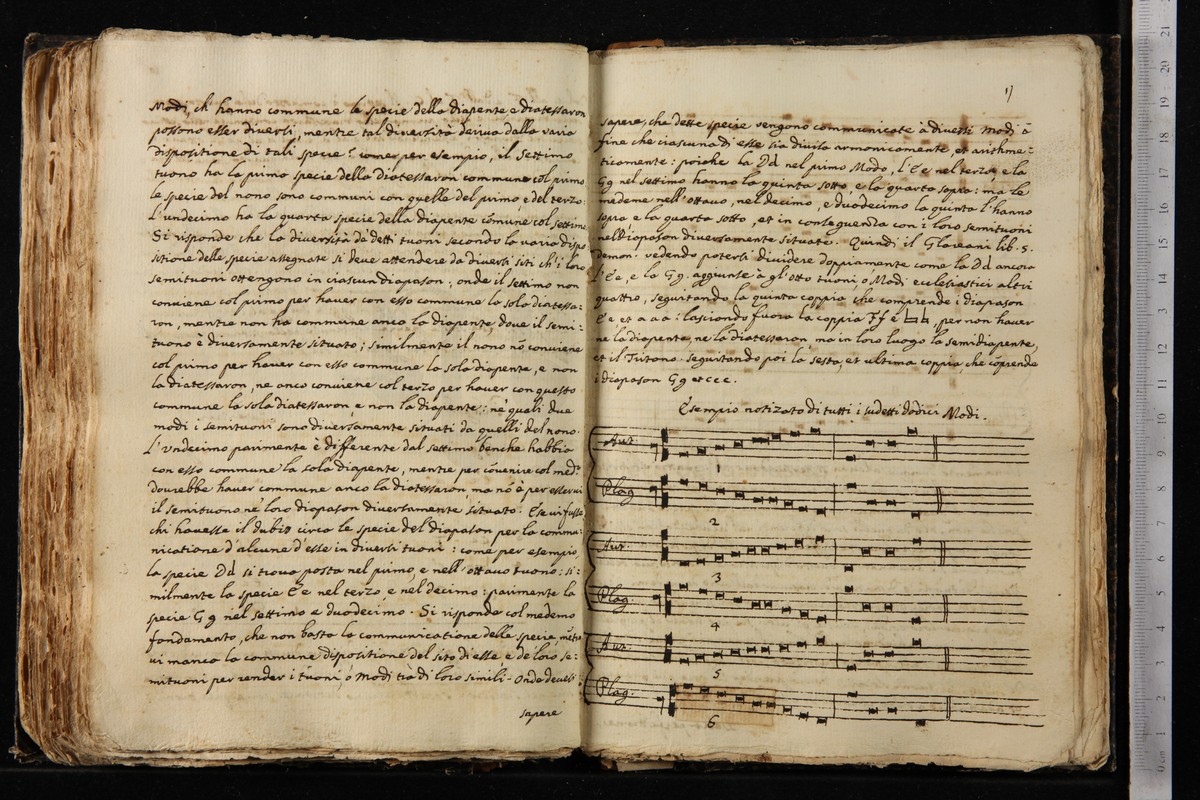 Modi, ch' hanno commune le specie della diapente, e diatessaron
possono esser diversi, mentre tal diversità deriva dalla varia
dispositione di tali specie? come per esempio, il settimo
tuono ha la primo specie della diatessaron commune col primo
le specie del nono sono communi con quelle del primo, e del terzo:
L'undecimo ha la quarta specie della diapente cōmune col settimo
Si risponde che la diversità de detti tuoni secondo la varia dispo
sitione delle specie assegnate si deve attendere da diversi siti ch' i loro
semituoni ottengono in ciascun diapason; onde il settimo non
conviene col primo per haver con esso commune la sola diatessa:
ron, mentre non ha commune anco la diapente, dove il semi:
tuono è diversamente situato; similmente il nono nō conviene
col primo per haver con esso commune la sola diapente, e non
la diatessaron, ne anco conviene col terzo per haver con questo
commune la sola diatessaron e non la diapente: ne' quali due
modi i semituoni sono diversamente situati da quelli del nono.
L'undecimo parimente è differente dal settimo benche habbia
con esso commune la sola diapente, mentre per cōvenire col med.o
dovrebbe haver commune anco la diatessaron ma nō è per esservi
il semituono ne' loro diapason diversamente situato. E se vi fusse
chi havesse il dubio circa le specie del diapason per la commu:
nicatione d'alcune d'esse in diversi tuoni: come per esempio,
la specie Dd si trova posta nel primo, e nell'ottavo tuono: si:
milmente la specie Ee nel terzo, e nel decimo: parimente la
specie Gg nel settimo e duodecimo. Si risponde col medemo
fondamento, che non basta la communicatione delle specie, mētre
vi manca la commune dispositione del sito di esse, e de loro se:
mituoni per render i tuoni, ò Modi trà di loro simili. Onde devesi
sapere
sapere, che dette specie vengono communicate à diversi Modi à
fine che ciascuna di esse sia divisa armonicamente, et arithme:
ticamente: poiche la Dd nel primo Modo, l'Ee nel terzo, e la
Gg nel settimo hanno la quinta sotto, e la quarta sopra: ma le
medeme nell'ottavo, nel decimo, e duodecimo la quinta l'hanno
sopra e la quarta sotto, et in conseguenza con i loro semituoni
nell'diapason diversamente situate. Quindi il Glareani lib. 5.
vedendo potersi dividere doppiamente come la Dd ancora
l'Ee, e la Gg. aggiunse à gl'otto tuoni, ò Modi ecclesiastici altri
quattro, seguitando la quinta coppia, che comprende i diapason
Ee et aaa: lasciando fuora la coppia Ff e ♮♮, per non haver
ne la diapente, ne la diatessaron, ma in loro luogo la semidiapente,
et il Tritono. seguitando poi la sesta, et ultima coppia che cōprende
i diapason Gg et ccc.
Esempio notizato di tutti i sudetti dodici Modi.
Aut.
1
Plag
2
Aut.
3
Plag.
4
Aut.
5
Plag.
6